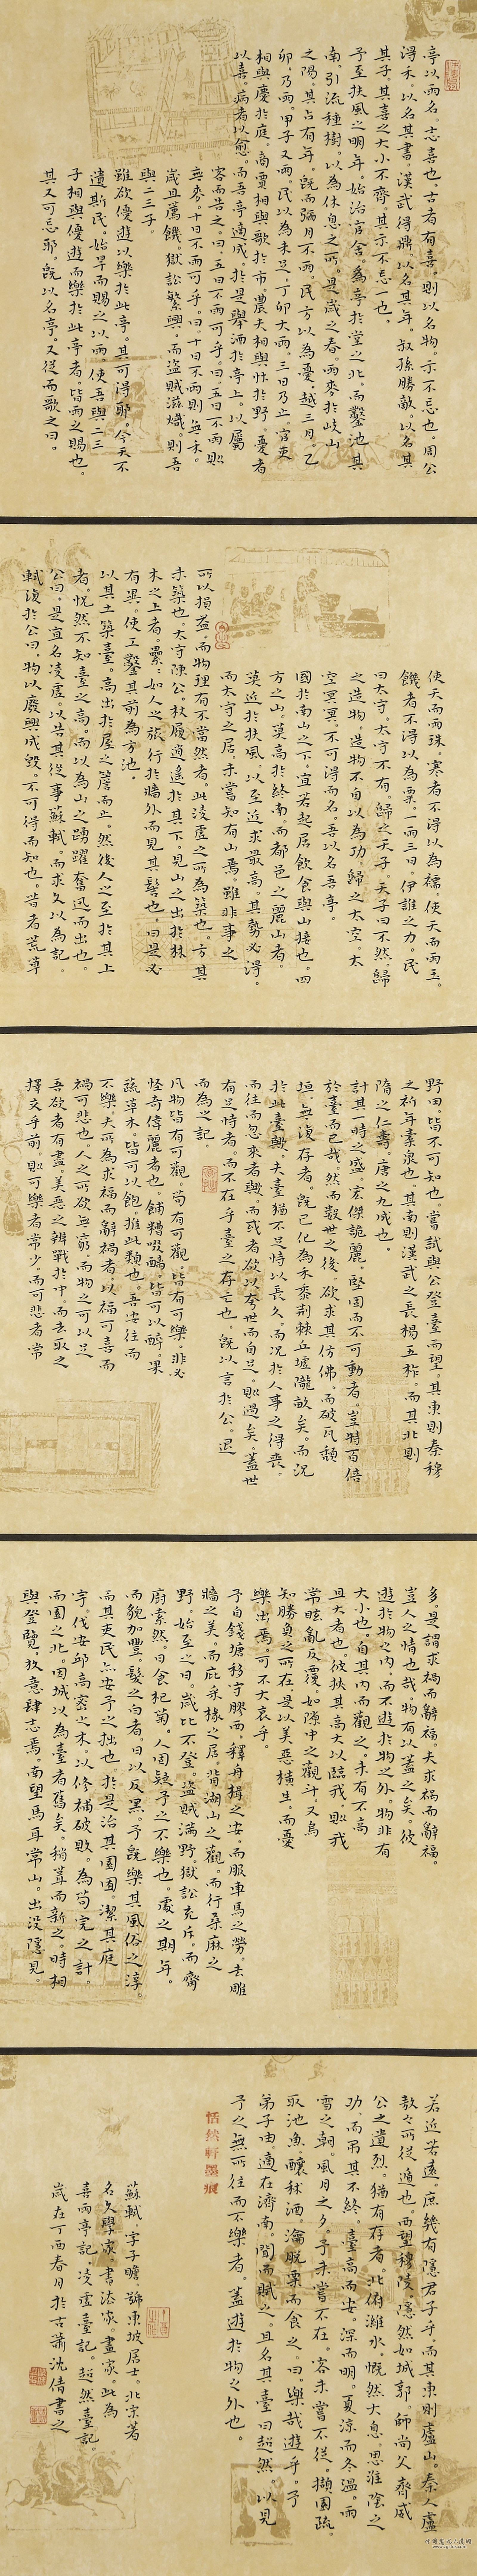 亭以雨名。志喜也。古者有喜。則以名物。示不忘也。周公
得禾。以名其書。漢武得鼎。以名其年。叔孫勝敵。以名其
其子。其喜之大小不齊。其示不忘一也。
予至扶風之明年。始治官舍。為亭於堂之北。而鑿池其
南。引流種樹。以為休息之所。是歲之春。雨麥於岐山
之陽。其占有年。既而彌月不雨。民方以為憂。越三月。乙
卯。乃雨。甲子又雨。民以為未足。丁卯大雨。三日乃止。官吏
相與慶於庭。商賈相與歌於市。農夫相與忭於野。憂者
以喜。病者以愈。而吾亭適成。於是舉酒於亭上。以屬
客而告之。曰。五日不雨可乎。曰。五日不雨則
無麥。十日不雨可乎。曰。十日不雨則無禾。
歲且薦饑。獄訟繁興。而盜賊滋熾。則吾
與二三子。
雖欲優遊以樂於此亭。其可得耶。今天不
遺斯民。始旱而賜之以雨。使吾與二三
子相與優遊而樂於此亭者。皆雨之賜也。
其又可忘耶。既以名亭。又從而歌之曰。
使天而雨珠。寒者不得以為襦。使天而雨玉。
饑者不得以為粟。一雨三日。伊誰之力。民
曰太守。太守不有。歸之天子。天子曰不然。歸
之造物。造物不自以為功。歸之太空。太
空冥冥。不可得而名。吾以名吾亭。
國於南山之下。宜若起居飲食與山接也。四
方之山。莫高於終南。而都邑之麗山者。
莫近於扶風。以至近求最高。其勢必得。
而太守之居。未嘗知有山焉。雖非事之
所以損益。而物理有不當然者。此凌虛之所為築也。方其
未築也。太守陳公。杖履逍遙於其下。見山之出於林
木之上者。纍纍如人之旅行於牆外而見其髻也。曰是必
有異。使工鑿其前為方池。
以其土築臺。高出於屋之簷而止。然後人之至於其上
者。恍然不知臺之高。而以為山之踴躍奮迅而出也。
公曰。是宜名凌虛。以告其從事蘇軾。而求文以為記。
軾復於公曰。物以廢興成毀。不可得而知也。昔者荒草
野田。皆不可知也。嘗試與公登臺而望。其東則秦穆
之祈年橐泉也。其南則漢武之長楊五柞。而其北則
隋之仁壽。唐之九成也。
計其一時之盛。宏傑詭麗。堅固而不可動者。豈特百倍
於臺而已哉。然而數世之後。欲求其仿佛。而破瓦頹
垣。無復存者。既已化為禾黍荊棘丘墟隴畝矣。而況
於此臺歟。夫臺猶不足恃以長久。而況於人事之得喪。
而往而忽來者歟。而或者欲以夸世而自足。則過矣。蓋世
有足恃者。而不在乎臺之存亡也。既以言於公。退
而為之記。
凡物皆有可觀。苟有可觀。皆有可樂。非必
怪奇偉麗者也。餔糟啜醨。皆可以醉。果
蔬草木。皆可以飽。推此類也。吾安往而
不樂。夫所為求福而辭禍者。以福可喜而
禍可悲也。人之所欲無窮。而物之可以足
吾欲者有盡。美惡之辨戰於中。而去取之
擇交乎前。則可樂者常少。而可悲者常
多。是謂求禍而辭福。夫求禍而辭福。
豈人之情也哉。物有以蓋之矣。彼
遊於物之內。而不遊於物之外。物非有
大小也。自其內而觀之。未有不高
且大者也。彼挾其高大以臨我。則我
常眩亂反覆。如隙中之觀斗。又烏
知勝負之所在。是以美惡橫生。而憂
樂出焉。可不大哀乎。
予自錢塘移守膠西。釋舟楫之安。而服車馬之勞。去雕
牆之美。而庇采椽之居。背湖山之觀。而行桑麻之
野。始至之日。歲比不登。盜賊滿野。獄訟充斥。而齋
廚索然。日食杞菊。人固疑予之不樂也。處之期年。
而貌加豐。髮之白者。日以反黑。予既樂其風俗之淳。
而其吏民亦安予之拙也。於是治其園圃。潔其庭
宇。伐安邱高密之木。以修補破敗。為苟完之計。
而園之北。因城以為臺者舊矣。稍葺而新之。時相
與登覽。放意肆志焉。南望馬耳常山。出沒隱見。
若近若遠。庶幾有隱君子乎。而其東則盧山。秦人盧
敖之所從遁也。西望穆陵。隱然如城郭。師尚父齊威
公之遺烈。猶有存者。北俯濰水。慨然大息。思淮陰之
功。而弔其不終。臺高而安。深而明。夏涼而冬溫。雨
雪之朝。風月之夕。予未嘗不在。客未嘗不從。擷園蔬。
取池魚。釀秫酒。瀹脫粟而食之。曰。樂哉遊乎。予
弟子由。適在濟南。聞而賦之。且名其臺曰超然。以見
予之無所往而不樂者。蓋遊於物之外也。
恬然軒墨痕
蘇軾。字子瞻。號東坡居士。北宋著
名文學家。書法家。畫家。此為
喜雨亭記。凌虛臺記。超然臺記。
歲在丁酉春月於古蕭沈倩書之